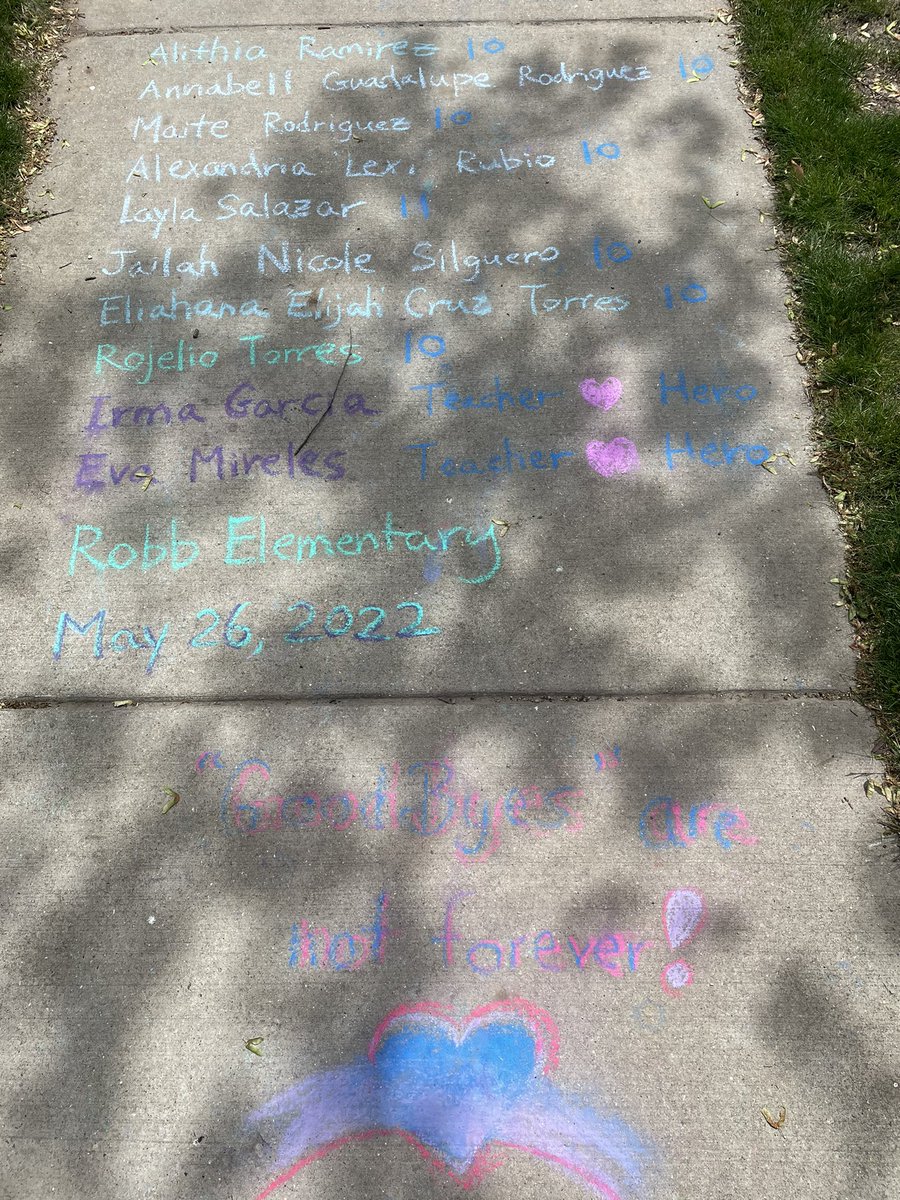 Alithia Ramirez 10
Annabell Guadalupe Rodriguez 10
Maite Rodriguez 10
Alexandria 'Lexi' Rubio 10
Layla Salazar 11
Jailah Nicole Silguero 10
Eliahana Elijah Cruz Torres 10
Rojelio Torres 10
Irma Garcia Teacher Hero
Eva Mireles Teacher Hero
Robb Elementary
May 26, 2022
"GoodByes" are
not forever!